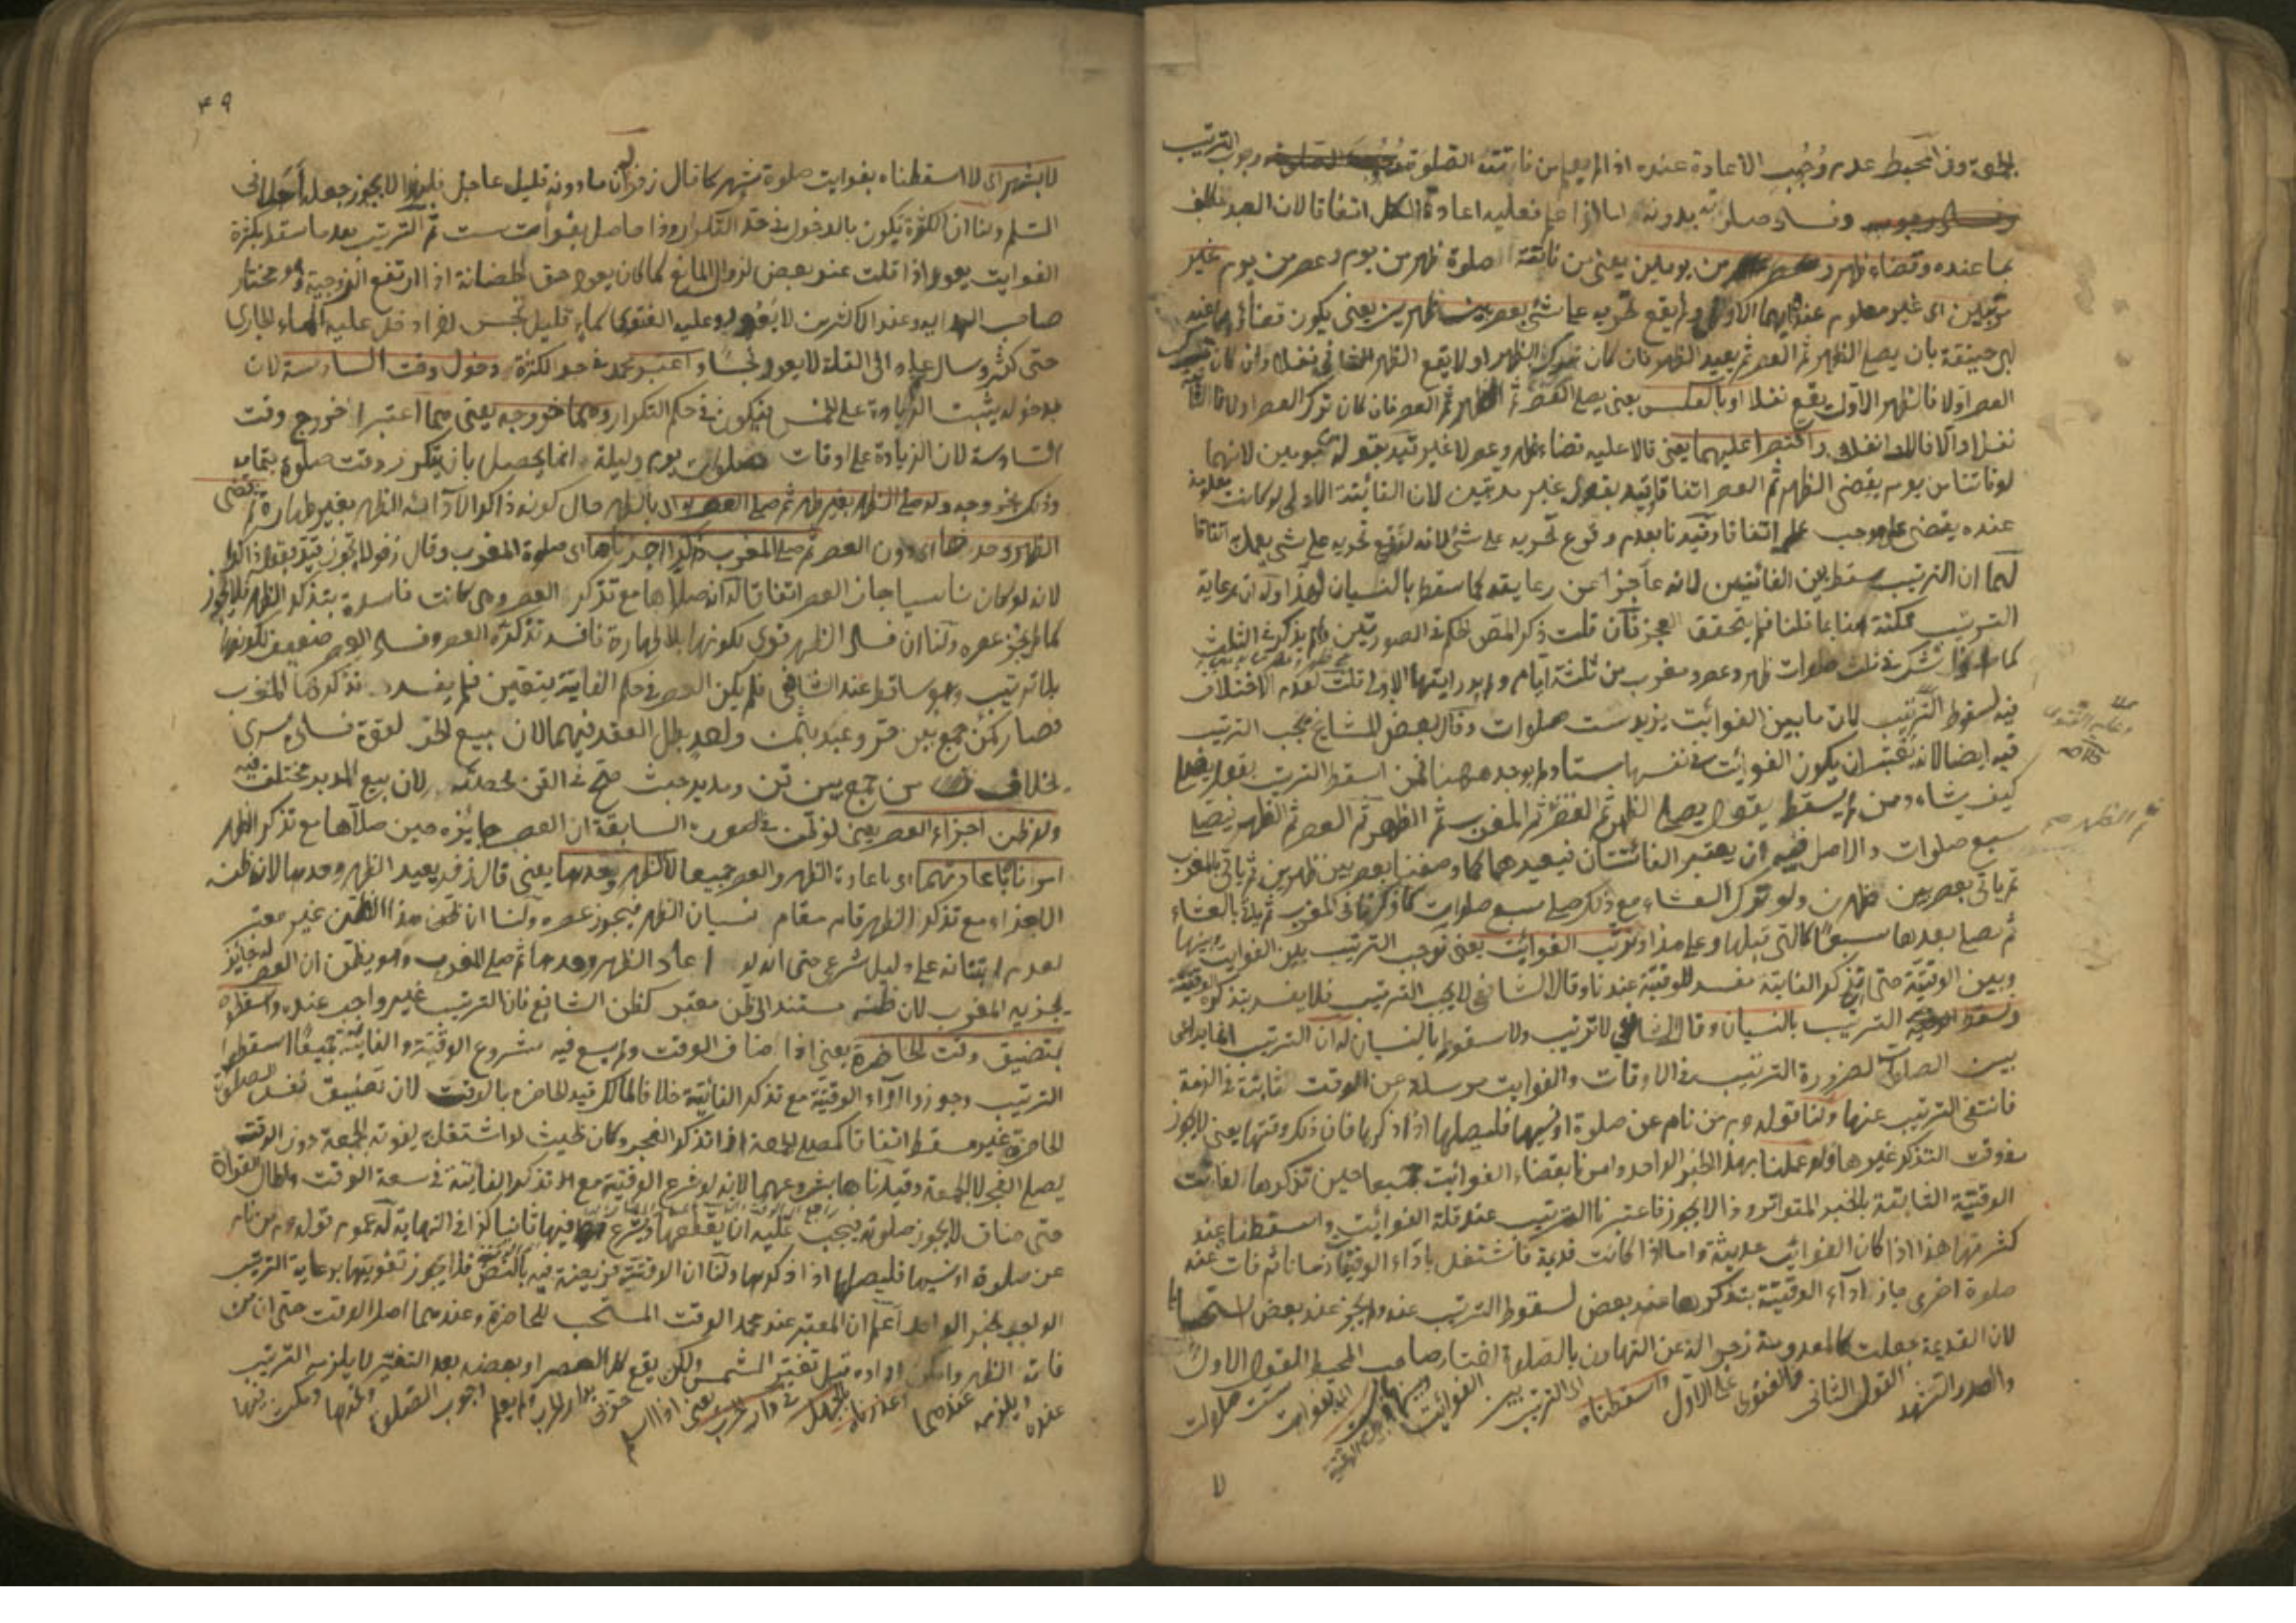 وفي المحيط عدم وجوب الاعادة عنده اذا لم يعلم من فاتته الصلوة وجوب الترتيب
وفساد صلوته بدونه اما اذا علم فعليه اعادة الكل اتفاقا لان العبد مكلف
بما عنده وقضاء ظهر وعصر من يومين يعني من فاتته صلوة ظهر من يوم وعصر من يوم غير
مرتبين اى غير معلوم عنده ايهما الاولى ولم يقع تحريه على شئ بعصر بين ظهرين يعنى يكون قضاؤهما عند
ابى حنيفة بان يصلى الظهر ثم العصر ثم يعيد الظهر فان كان ترك الظهر اولا يقع الظهر الثانى نفلا وان كان ترك
العصر اولا فالظهر الاول يقع نفلا او بالعكس يعنى يصلى العصر ثم الظهر ثم العصر فان كان ترك العصر اولا فالثانية
نفل والا فالاولى نفل واقتصرا عليهما يعنى قالا عليه قضاء ظهر وعصر لا غير قيد بقوله من يومين لانهما
لو فاتتا من يوم يقضى الظهر ثم العصر اتفاقا قيد بقوله غير مرتبين لان الفائتة الاولى لو كانت معلومة
عنده يقضى على موجب علمه اتفاقا وقيدنا بعدم وقوع تحريه على شئ لانه لو وقع تحريه على شئ يعمل به اتفاقا
لهما ان الترتيب سقط بين الفائتتين لانه عاجز عن رعايته كما سقط بالنسيان وله ان رعاية
الترتيب ممكنة هنا بما قلنا فلم يتحقق العجز فان قلت ذكر المص الحكم فى الصورتين ولم يذكر فى الثلث
كما اذا شك فى ثلث صلوات ظهر وعصر ومغرب من ثلثة ايام ولم يدر ايتها الاولى قلت لعدم الاختلاف
فيه لسقوط الترتيب لان ما بين الفوائت يزيد ست صلوات وقال بعض المشايخ يجب الترتيب
فيه ايضا لانه يعتبر ان يكون الفوائت فى نفسها ستا ولم يوجد ههنا فمن اسقط الترتيب يقول يصلى
كيف يشاء ومن لم يسقط يقول يصلى الظهر ثم العصر ثم المغرب ثم الظهر ثم العصر ثم الظهر فيصلى
سبع صلوات والاصل فيه ان يعتبر الفائتتان فيعيدهما كما وصفنا بعصر بين ظهرين ثم ياتى بالمغرب
ثم ياتى بعصر بين ظهرين ولو ترك العشاء مع ذلك صلى سبع صلوات كما ذكرنا فى المغرب ثم ياتى بالعشاء
ثم يصلى بعدها سبعا كالتى قبلها وعلى هذا ونرتب الفوائت يعنى نوجب الترتيب بين الفوائت وبينها
وبين الوقتية حتى تذكر الفائتة مفسد للوقتية عندنا وقال الشافعى لا يجب الترتيب فلا يفسد بتذكره الوقتية
وسقط الترتيب بالنسيان وقال الشافعى لا ترتيب ولا سقوط بالنسيان له ان الترتيب انما يراعى
بين الصلوات لضرورة الترتيب فى الاوقات والفوايت مرسلة عن الوقت ثابتة فى الذمة
فانتفى الترتيب عنها ولنا قوله عم من نام عن صلوة او نسيها فليصلها اذا ذكرها فان ذلك وقتها يعنى لا يجوز
فى وقت التذكر غيرها ولو عملنا بهذا الخبر الواحد وامرنا بقضاء الفوائت جميعا حين تذكرها لفاتت
الوقتية الثابتة بالخبر المتواتر وذا لا يجوز فاعتبرنا الترتيب عند قلة الفوائت واسقطنا عند
كثرتها هذا اذا كان الفوائت حديثة واما اذا كانت قديمة فاشتغل باداء الوقتية زمانا ثم فات عنه
صلوة اخرى جاز اداء الوقتية بتذكرها عند بعض لسقوط الترتيب عنده ولم يجز عند بعض استحسانا
لان القديمة جعلت كالمعدومة زجرا له عن التهاون بالصلوة اختار صاحب المحيط القول الاول
والصدر الشهيد القول الثانى والفتوى على الاول واسقطناه اى الترتيب بين الفوائت وبينها وبين الوقتية بفوات ست صلوات
وعليه الفتوى
صح
ثم الظهر صح
٤٩
لا بشهر اى لا اسقطناه بفوايت صلوة شهر كما قال زفر له ان ما دونه قليل عاجل فلهذا لا يجوز جعله اجلا فى
السلم ولنا ان الكثرة تكون بالدخول فى حد التكرار وذا حاصل بفوات ست ثم الترتيب بعد ما سقط بكثرة
الفوايت يعود اذا قلت عند بعض لزوال المانع كما كان يعود حق الحضانة اذا ارتفع الزوجية وهو مختار
صاحب الهدايه وعند الاكثرين لا يعود وعليه الفتوى كماء قليل نجس اذا دخل عليه الماء الجارى
حتى كثر وسال عياه الى القلة لا يعود نجسا واعتبر محمد فى حد الكثرة دخول وقت السادسة لان
بدخوله يثبت الزيادة على الخمس فيكون فى حكم التكرار وهما خروجه يعنى هما اعتبرا خروج وقت
السادسة لان الزيادة على اوقات صلوات يوم وليلة انما يحصل بان يتكرر وقت صلوة بتمامه
وذلك بخروجه ولو صلى الظهر بغير طهر ثم صلى العصر ذاكرا اى بالظهر حال كونه ذاكرا لاداء الظهر بغير طهارة ثم قضى
الظهر وحدها اى دون العصر ثم صلى المغرب ذاكرا اجزناها اى صلوة المغرب وقال زفر لا يجوز قيد بقوله ذاكرا
لانه لو كان ناسيا جاز العصر اتفاقا له انه صلاها مع تذكر العصر وهى كانت فاسدة بتذكر الظهر فلا يجوز
كما لم يجز عصره ولنا ان فساد الظهر قوى لكونها بلا طهارة فافسد تذكره العصر وفساد العصر ضعيف لكونها
بلا ترتيب وهو ساقط عند الشافعى فلم يكن العصر فى حكم الفايتة بيقين فلم يفسد تذكرها المغرب
فصار كمن جمع بين حر وعبد بثمن واحد بطل العقد فيهما لان بيع الحر لقوة فساده سرى
بخلاف من جمع بين قن ومدبر حيث صح فى القن بحصته لان بيع المدبر مختلف فيه
ولو ظن اجزاء العصر يعنى لو ظن فى الصورة السابقة ان العصر جايزه حين صلاها مع تذكر الظهر
امرنا باعادتهما اى باعادة الظهر والعصر جميعا لا الظهر وحدها يعنى قال زفر يعيد الظهر وحدها لان ظنه
الاجزاء مع تذكر الظهر قام مقام نسيان الظهر فيجوز عصره ولنا ان ظن هذا الظن غير معتبر
لعدم ابتنائه على دليل شرعى حتى انه لو اعاد الظهر وحدها ثم صلى المغرب وهو يظن ان العصر له جائز
يجزيه المغرب لان ظنه مستند الى ظن معتبر كظن الشافعى فان الترتيب غير واجب عنده واسقطوه
بتضيق وقت الحاضرة يعنى اذا ضاق الوقت ولم يسع فيه مشروع الوقتية والفايتة جميعا اسقطوا
الترتيب وجوزوا اداء الوقتية مع تذكر الفائتة خلافا لمالك قيد الحاضرة بالوقت لان تضييق نفس الصلوة
الحاضرة غير مسقط اتفاقا كمصلى الجمعة اذا تذكر الفجر وكان بحيث لو اشتغل به يفوته الجمعة دون الوقت
يصلى الفجر لا الجمعة وقيدناها بشروعهما لانه لو شرع الوقتية مع تذكر الفايتة فى سعة الوقت واطال القراءة
حتى ضاق لا يجوز صلوته فيجب عليه ان يقطعها ويشرع فيها ثانيا كذا فى النهاية له عموم قوله عم من نام
عن صلوة او نسيها فليصلها اذا ذكرها ولنا ان الوقتية فريضة فيه بالنص فلا يجوز تفويتها برعاية الترتيب
الواجب بخبر الواحد اعلم ان المعتبر عند محمد الوقت المستحب للحاضرة وعندهما اصل الوقت حتى ان من
فاته الظهر وامكن اداؤه قبل تغير الشمس ولكن يقع كل العصر او بعضه بعد التغير لا يلزمه الترتيب
عنده ويلزمه عندهما اعذرناه بالجهل فى دار الحرب يعنى اذا اسلم حربى بدار الحرب ولم يعلم وجوب الصلوة وغيرها ومكث فيها